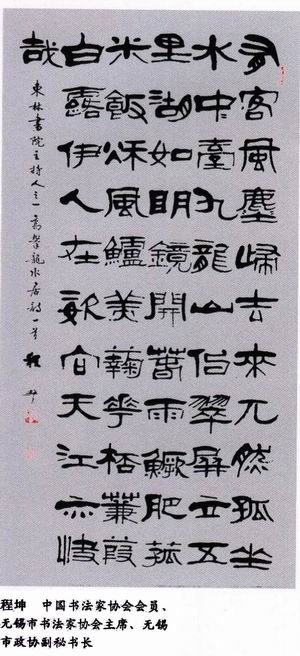 有客風塵歸去來兀然孤坐
水中臺九龍山佀翠屏立五
里湖如明鏡開萅雨鱖肥菰
米飯秋風鱸美蘜花桮蒹葭
白露伊人在向天江亦快
哉
東林書院主持人之一高攀龍水居詩一首 程坤
程坤 中国书法家协会会员、
无锡市书法家协会主席、无锡
市政协副秘书长